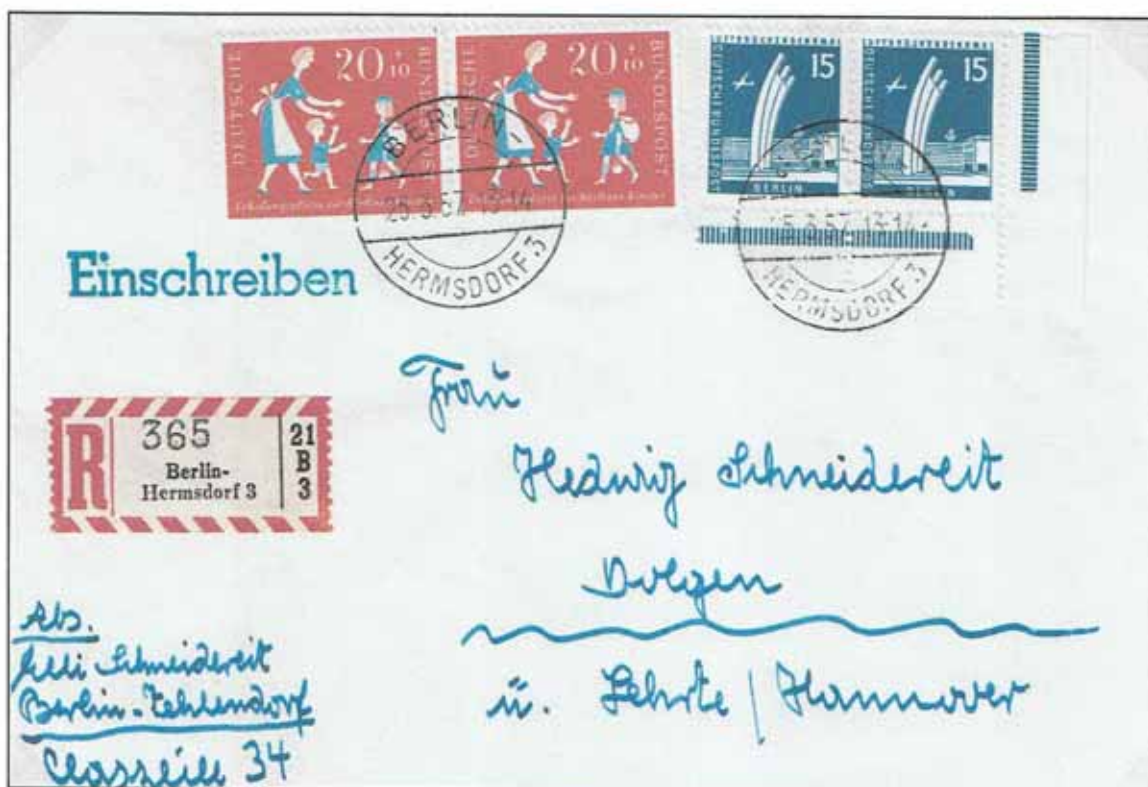 DEUTSCHE
20 + 10
BUNDESPOST
DEUTSCHE
20 + 10
BUNDESPOST
15
DEUTSCHE BUNDESPOST
BERLIN
15
DEUTSCHE BUNDESPOST
BERLIN
BERLIN-
25.3.57.13-14
HERMSDORF 3
5.3.57.13-14
HERMSDORF 3
Einschreiben
R
365
Berlin-
Hermsdorf 3
21
B
3
Frau
Hedwig Schneidereit
Dolgen
ü. Lehrte / Hannover
Abs.
Elli Schneidereit
Berlin-Zehlendorf
Claszeile 34